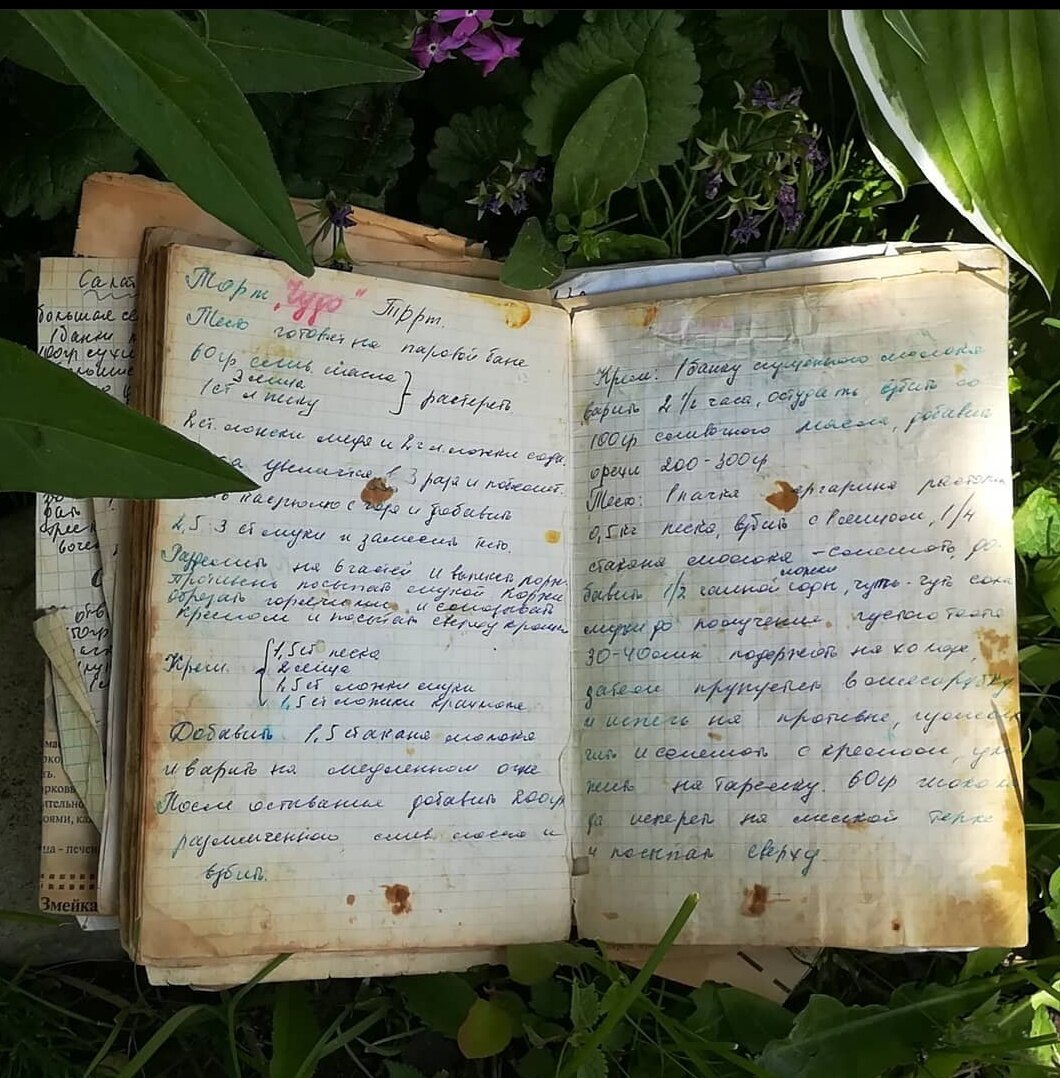 Салат
большая св
1 банки
100гр сухи
Торт „Чудо" Торт.
Тесто готовят на паровой бане
60гр слив. масла
3 яйца
1 ст л песку
} растереть
2 ст. ложки меда и 2 ч л. ложки соды.
увеличится в 3 раза и
кастрюлю с огня и добавить
2,5-3 ст муки и замесить тесто.
Разделить на 6 частей и выпечь коржи
Противень посыпать мукой Коржи
обрезать горячими и смазывать
кремом и посыпать сверху крошкой
Крем.
{ 1,5 ст песка
2 яйца
1,5 ст ложки муки
1,5 ст ложки крахмала
Добавить 1,5 стакана молока
и варить на медленном огне
После остывания добавить 200гр
размягченного слив. масла и
взбить.
Крем: 1 банку сгущенного молока
варить 2 1/2 часа, остудить, взбить со
100гр сливочного масла, добавить
орехи 200-300гр
Тесто: 1 пачка ергарина растопить
0,5кг песка, взбить с яйцом, 1/4
стакана молока - смешать, до-
бавить 1/2 чайной ложки соды, чуть-чуть соли
муки до получения густого теста
30-40мин подержать на холоде,
затем пропустить в мясорубку
и испечь на противне,
и смешать с кремом, уло
жить на тарелку. 60гр шокола
да натереть на мелкой терке
и посыпать сверху.
Змейка